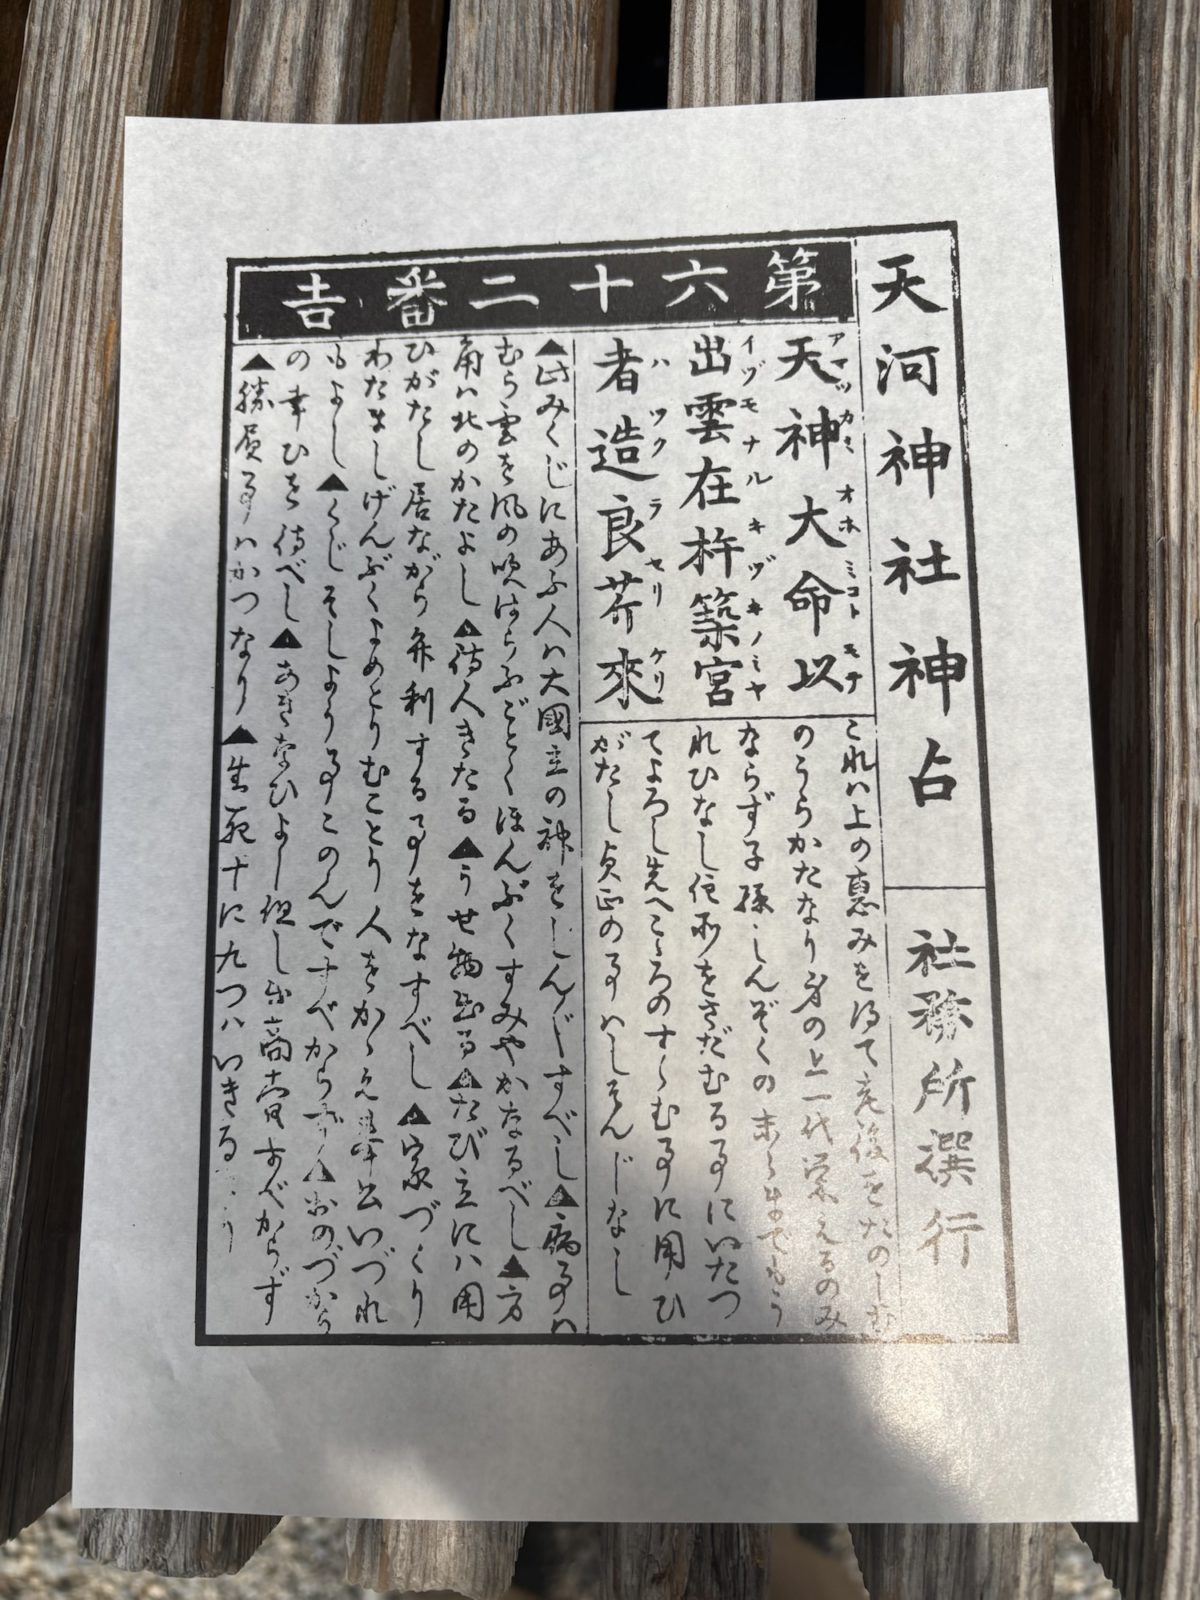 天河神社神占
社務所選行
第六十二番吉
天神大命以
アマツカミオホミコトモチ
出雲在杵築宮
イヅモナルキヅキノミヤ
者造良芥來
ハツクラセリケリ
これハ上の惠みを得て老後をたのしむ
のうらかたなり身の上一代栄えるのみ
ならず子孫しんぞくの末々までもう
れひなし住所をさだむる事にいたつ
てよろし先へこゝろのすゝむ事に用ひ
がたし貞正の事ハしそんじなし
▲此みくじにあふ人ハ大國主の神をしんじすべし▲病事ハ
むら雲を風の吹はらふごとくほんぷくすみやかなるべし▲方
角ハ北のかたよし▲待人きたる▲うせ物出る▲たび立にハ用
ひがたし居ながら弁利する事をなすべし▲家づくり
わたましげんぶくよめとりむことり人をかゝえ奉公いづれ
もよし▲くじそしよう事このんですべからず▲おのづから
の幸ひを待べし▲あきなひよし但し出商賣すべからず
▲勝負事ハかつなり▲生死十に九つハいきる